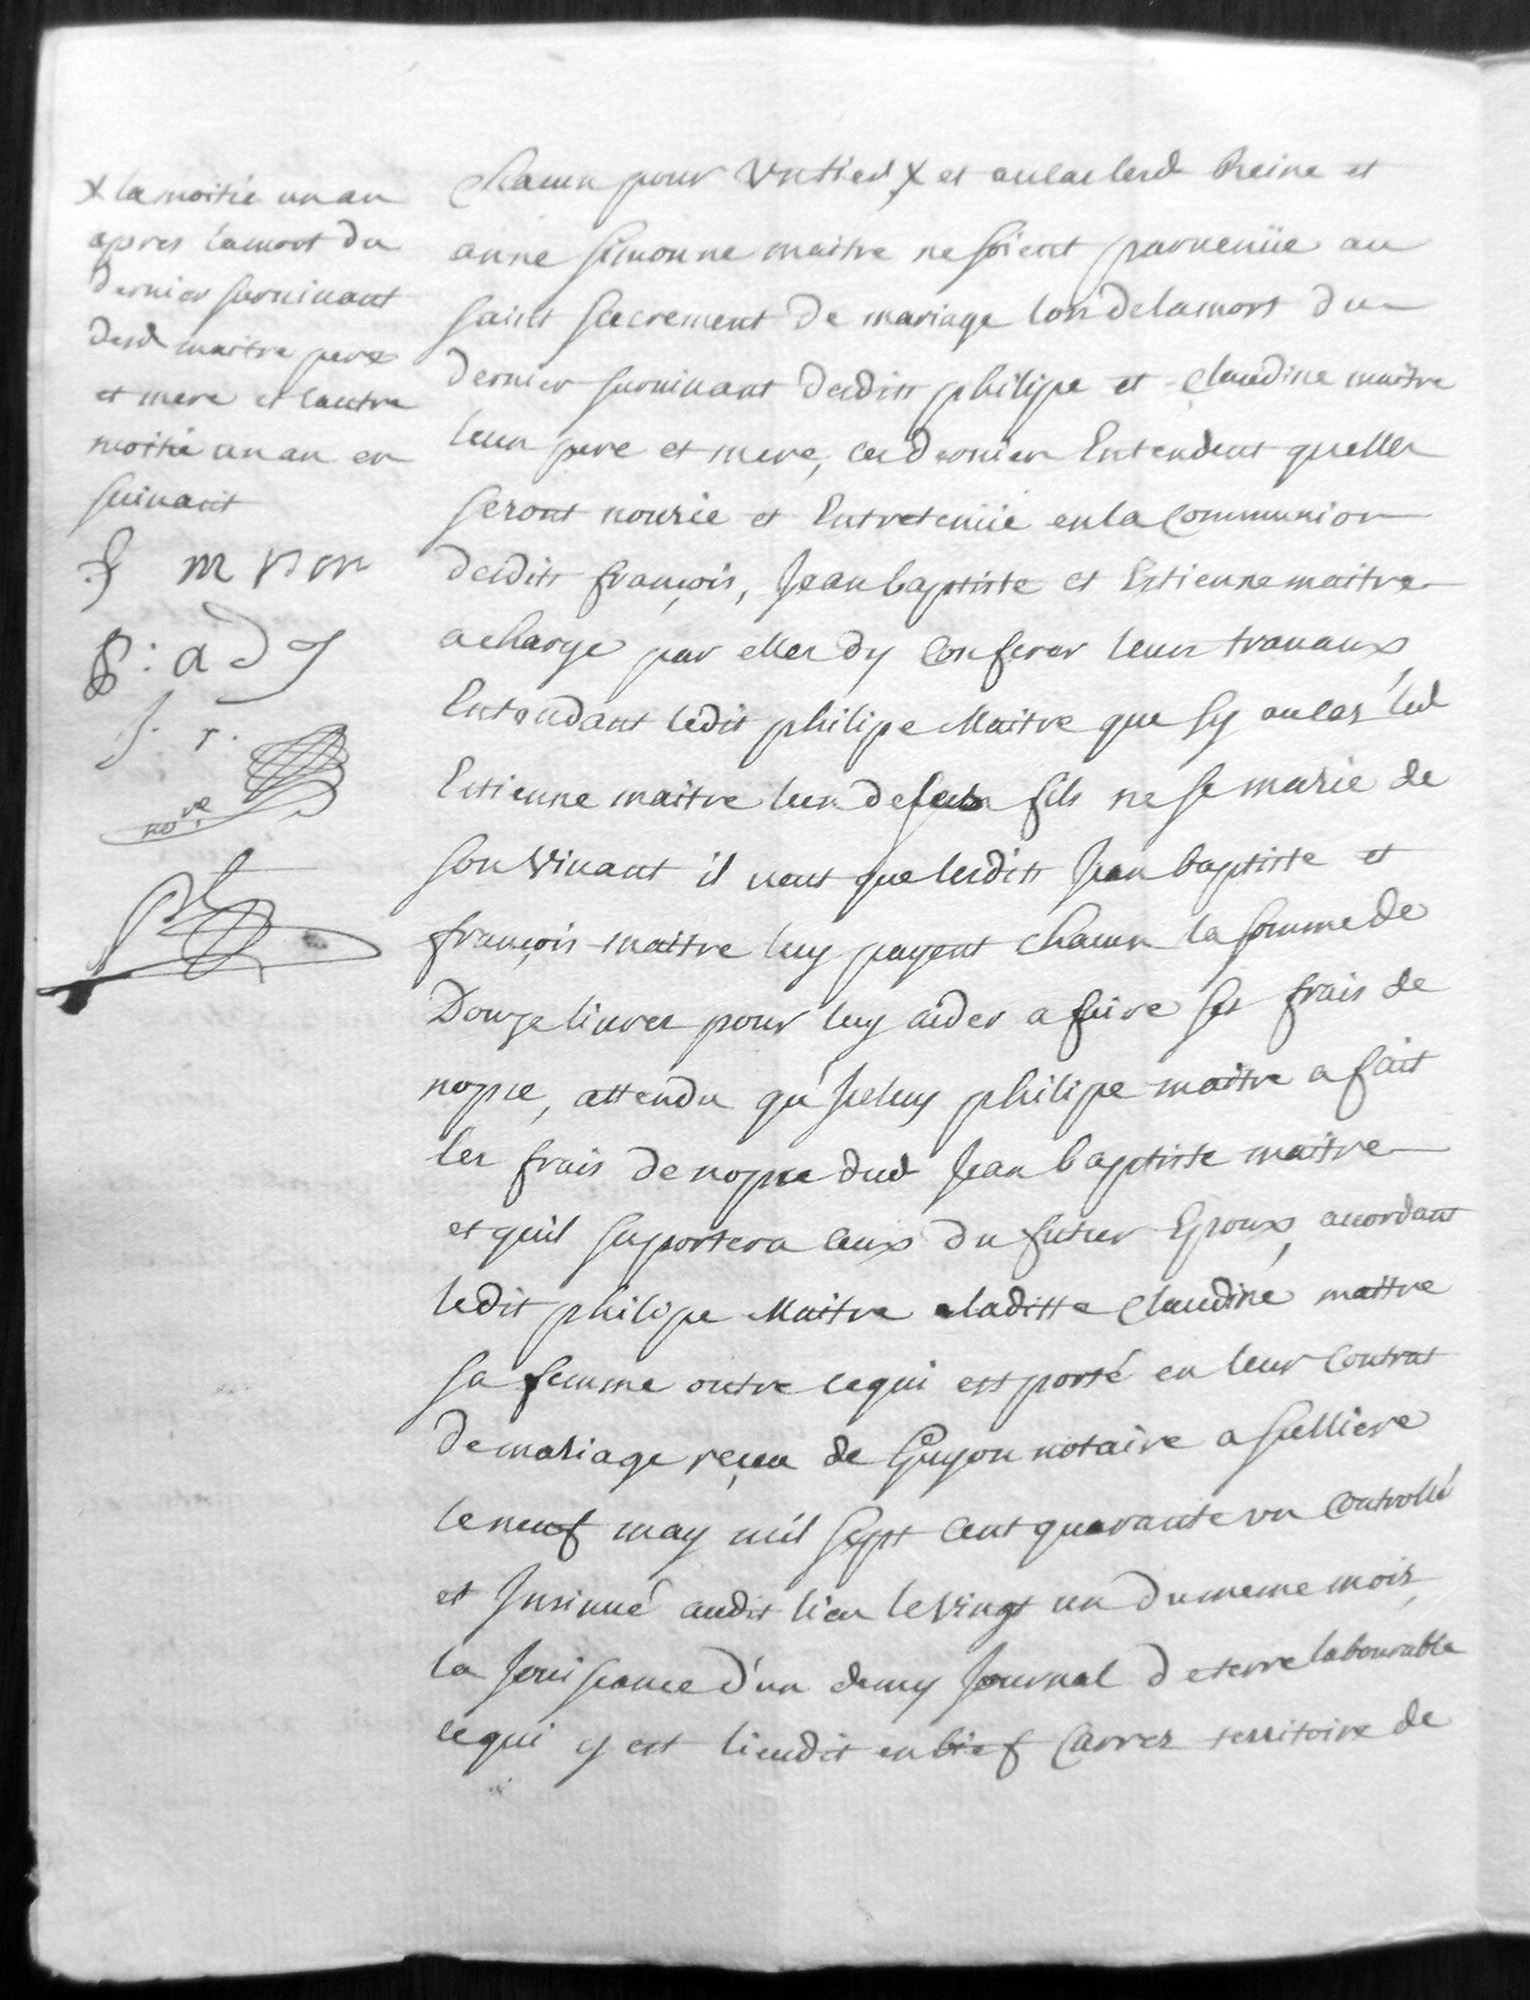 x la moitié un an
apres lamort du
dernier survivant
desd maitre pere
et mere et lautre
moitié un an en
suivant
chacun pour un tied x et aucas lesd Reine et
anne simonne maitre ne soient parvenüe au
saint sacrement de mariage lors delamort du
dernier survivant desdits philipe et Claudine maitre
leur pere et mere, ces dernier Entendent quelles
seront nourie et Entretenüe enla Communion
desdits françois, Jean baptiste et Estienne maitre
acharge par elles dy Conferer leurs travaux
Entendant ledit philipe Maitre que sy aucas led
Estienne maitre leur fils ne se marie de
son vivant il veut que lesdits Jean baptiste et
françois maitre luy payent chacun la somme de
Douze livres pour luy aider a faire ses frais de
nopce, attendu qu'Jceluy philipe maitre a fait
les frais de nopce dud Jean baptiste maitre
et quil suportera ceux du futur Epoux, accordant
ledit philipe Maitre aladitte Claudine maitre
sa femme outre cequi est porté en leur Contrat
de mariage reçeu de Guyon notaire a selliere
le neuf may mil sept cent quarante un Controllé
et Jnsinué audit lieu le vingt un du meme mois,
la Jouissance d'un demy Journal de terre labourable
cequi y est lieudit en bief Carrez territoire de